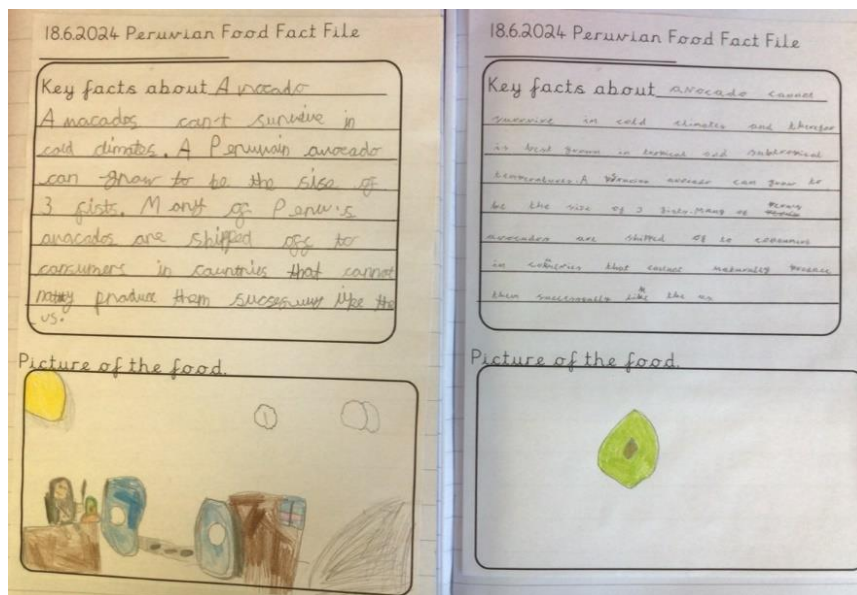 18.6.2024 Peruvian Food Fact File
Key facts about Avocado
Avacados can't survive in
cold climates. A Peruvain avocado
can grow to be the sise of
3 fists. Many of Peru's
avacados are shipped off to
consumers in countries that cannot
produce them like the
us.
Picture of the food.
18.6.2024 Peruvian Food Fact File
Key facts about avocado cannot
survive in cold climates and
is best grown in and subtropical
temperatures. A avocado can grow to
be the size of 3 fists. Many of
avocados are shipped of to consumers
in countries that cannot naturally produce
them successfully like the us
Picture of the food.